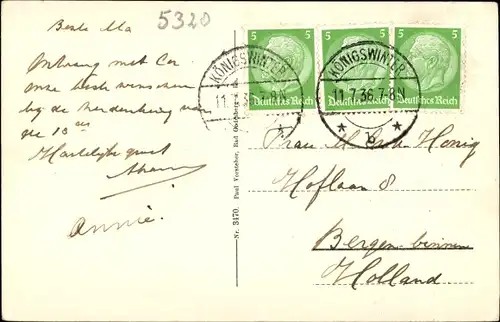 Beste Ma
5320
Ontvang met Co
onze beste wenschen
bij de herdenking van
de 13
Hartelijke groet
Annie.
Nr. 3170. Paul Vorsteher, Bad Godesberg
5 5 5
Deutsches Reich Deutsches Reich Deutsches Reich
KÖNIGSWINTER
11.7.36.7-8N
KÖNIGSWINTER
11.7.36.7-8N
* b *
Frau Honig
Hoflaan 8
Bergen-binnen
Holland